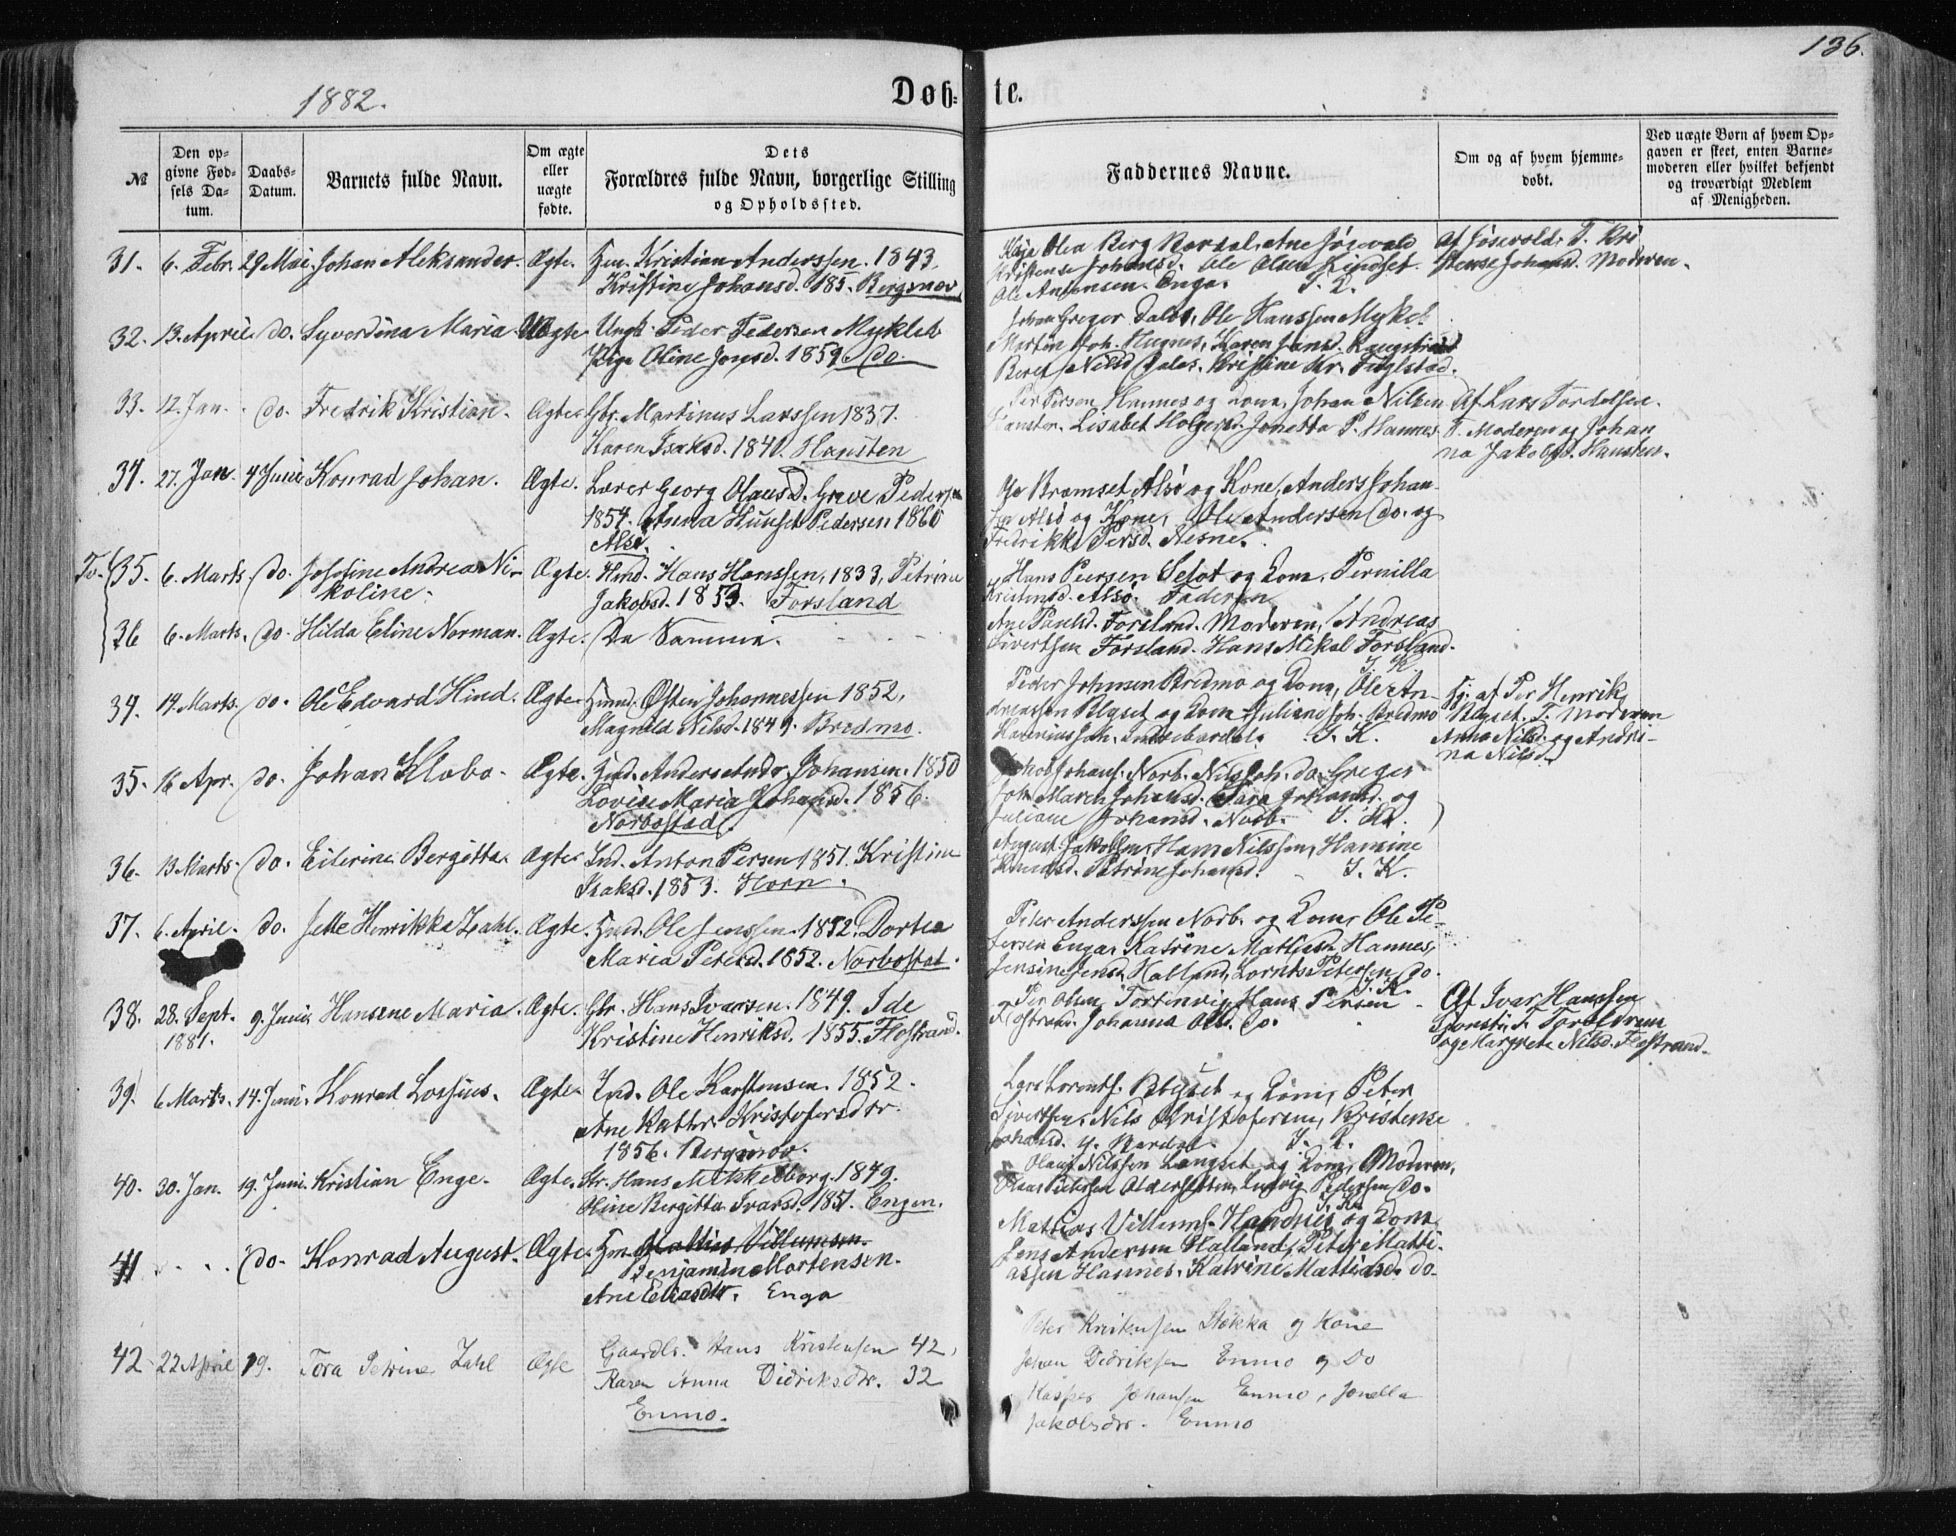 136.
1882.
Døb=
te.
№
Den opgivne Fødsels Datum.
Daabs-Datum.
Barnets fulde Navn.
Om ægte eller uægte fødte.
Dets Forældres fulde Navn, borgerlige Stilling og Opholdssted.
Faddernes Navne.
Om og af hvem hjemmedøbt.
Ved uægte Børn af hvem Opgaven er skeet, enten Barnemoderen eller hvilket bekjendt og troværdigt Medlem af Menigheden.
31. 6. Febr. 29 Mai. Johan Aleksander. Ægte. Kristian Anderssen. 1843.
Kristine Johansd. 185.
Olea Berg
Johansd. Ole Olsen
Ole Antonsen. Enga.
Moderen.
32. 13. April. do. Syverdina Maria. Uægte Ungk. Peder Pedersen Mykleb
Pige Oline Jonsd. 1859. do.
Johan Greger Dalos, Ole Hanssen Mykel.
Martin Joh. Hugnes, Karen Jansd.
33. 12. Jan. do. Fredrik Kristian. Ægte Gbr. Martinus Larssen 1837.
Karen Isaksd. 1840. Hansten
Per Person Hannes og Kona, Johan Nilsen
Lisabet Holgersd. Jonetta P. Hannes.
Af Lars Tordelsen.
T. Moderen og Johan
na Jakobsd. Hansten.
34. 27. Jan. 4 Juni Konrad Johan. Ægte. Lærer Georg Olaus D. Greve Peders
1854. Anna Hunset Pedersen 1860
Alsö.
Bremset Alsö og Kone, Anders Johan
Alsö og Kone, Ole Andersen do. og
Fredrikke Persd. Nesne.
Tv. 35. 6. Marts. do. Josefine Andrea Ni-
koline. Ægte. Hmd. Hans Hanssen, 1833, Petrine
Jakobsd. 1853. Forsland
Hans Peersen Selot og Kona. Pernilla
Kristensd. Alsö. Faderen
36 6. Marts. do. Hilda Eline Norman. Ægte. De Samme.
Ane Paulsd. Forsland. Moderen, Andreas
Sivertsen Forsland. Hans Mikal Forsland.
34. 14. Marts. do. Ole Edvard Hind. Ægte. Østen Johannessen 1852,
Magnild Nilsd. 1849. Bredmo.
Peder Johnsen Bredmo og Kona, Ole An-
Juliane Joh. Bredmo
af Per Henrik
T. Moderen
Anna Nilsd. og Andri-
na Nilsd.
35. 16 Apr. do. Johan Klobo. Ægte. Anders Andr. Johansen. 1850
Lovise Maria Johansd. 1856.
Norbostad.
Johansd. Norb. I. K.
36. 13 Marts. do. Eilerine Bergitta. Ægte Ind. Anton Persen 1851. Kristine
Isaksd. 1853. Horn.
August Jakobsen, Hans Nilssen, Hansine
Petrine Johansd. I. K.
37. 6. April. do. Jette Henrikka Zahl. Ægte. Ole Jenssen. 1852. Dortea
Maria Petersd. 1852. Norbostad.
Peter Anderssen Norb. og Kona, Ole Pe-
tersen Enga. Katrine Mattiasd. Hannes,
Jensine Jensd. Halland, Lornts Petersen do.
38. 28. Sept.
1881. 9. Juni. Hansene Maria. Ægte. Gbr. Hans Ivarsen. 1849. Ide
Kristine Henriksd. 1855. Flostrand.
Per Olsen Hans Persen
Johanna Ols. do.
Af Ivar Hanssen
og Margrete Nilsd. Flostrand.
39. 6 Marts. 14. Juni. Konrad Lossius. Ægte Ind. Ole Karstensen. 1852.
Ane Kathr. Kristofersdtr.
1856.
Lars Lorents. og Kona, Peter
Sivertsen. Nils Kristofersen, Kristense
Johansd.
40. 30. Jan. 19. Juni. Kristian Enge. Ægte. Str. Hans Mikkelborg. 1849.
Oline Bergitta Ivarsd. 1857. Engen.
Olaus Nilssen Langset og Kona, Moderen,
Ludvig Pedersen do.
41 do. Konrad August. Ægte. Mattias Villumsen.
Benjamin Mortensen.
Ane Eliasdtr. Enga
Mattias Villums. Handnes og Kona
Jens Andersen Halland, Peter Matti-
assen Hannes. Katrine Mattiasd. do.
42 22 April 19. Tora Petrine Zahl Ægte Gaardbr. Hans Kristensen 42,
Karen Anna Didriksdtr. 32
Enmo.
Peter Kristensen Stokka og Kone
Johan Didriksen Enmo og Do
Kasper Johansen Enmo, Jonella
Jakobsdtr. Enmo